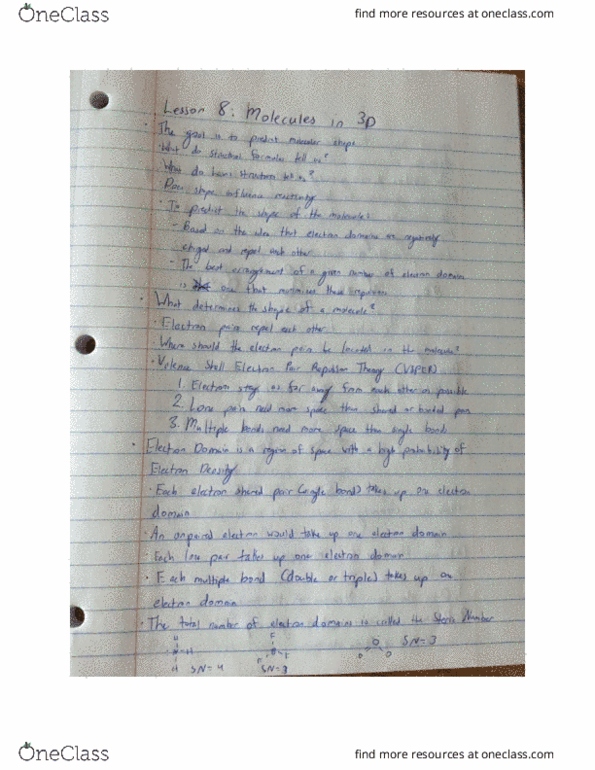 OneClass
find more resources at oneclass.com
Lesson 8: Molecules in 3D
• The goal is to predict molecular shape
• What do structural formulas tell us?
What do Lewis structures tell us?
Does shape influence reactivity
• To predict the shape of the molecules:
- Based on the idea that electron domains are negatively
charged and repel each other
- The best arrangement of a given number of electron domain
is one that minimizes these repulsion
• What determines the shape of a molecule?
• Electron pairs repel each other
Where should the electron pairs be located in the molecule?
• Valence Shell Electron Pair Repulsion Theory
1. Electron stays as far away from each other as possible
2. Lone pairs need more space than shared or bonded pairs
3. Multiple bonds need more space than single bonds
• Electron Domain is a region of space with a high probability of
Electron Density
• Each electron shared pair (single bond) takes up one electron
domain
• An unpaired electron would take up one electron domain
• Each lone pair takes up one electron domain
• Each multiple bond (double or triple) takes up one
electron domain
• The total number of electron domains is called the Steric Number
H F
H F F O O O SN=3
H SN=4 SN=3
OneClass
find more resources at oneclass.com